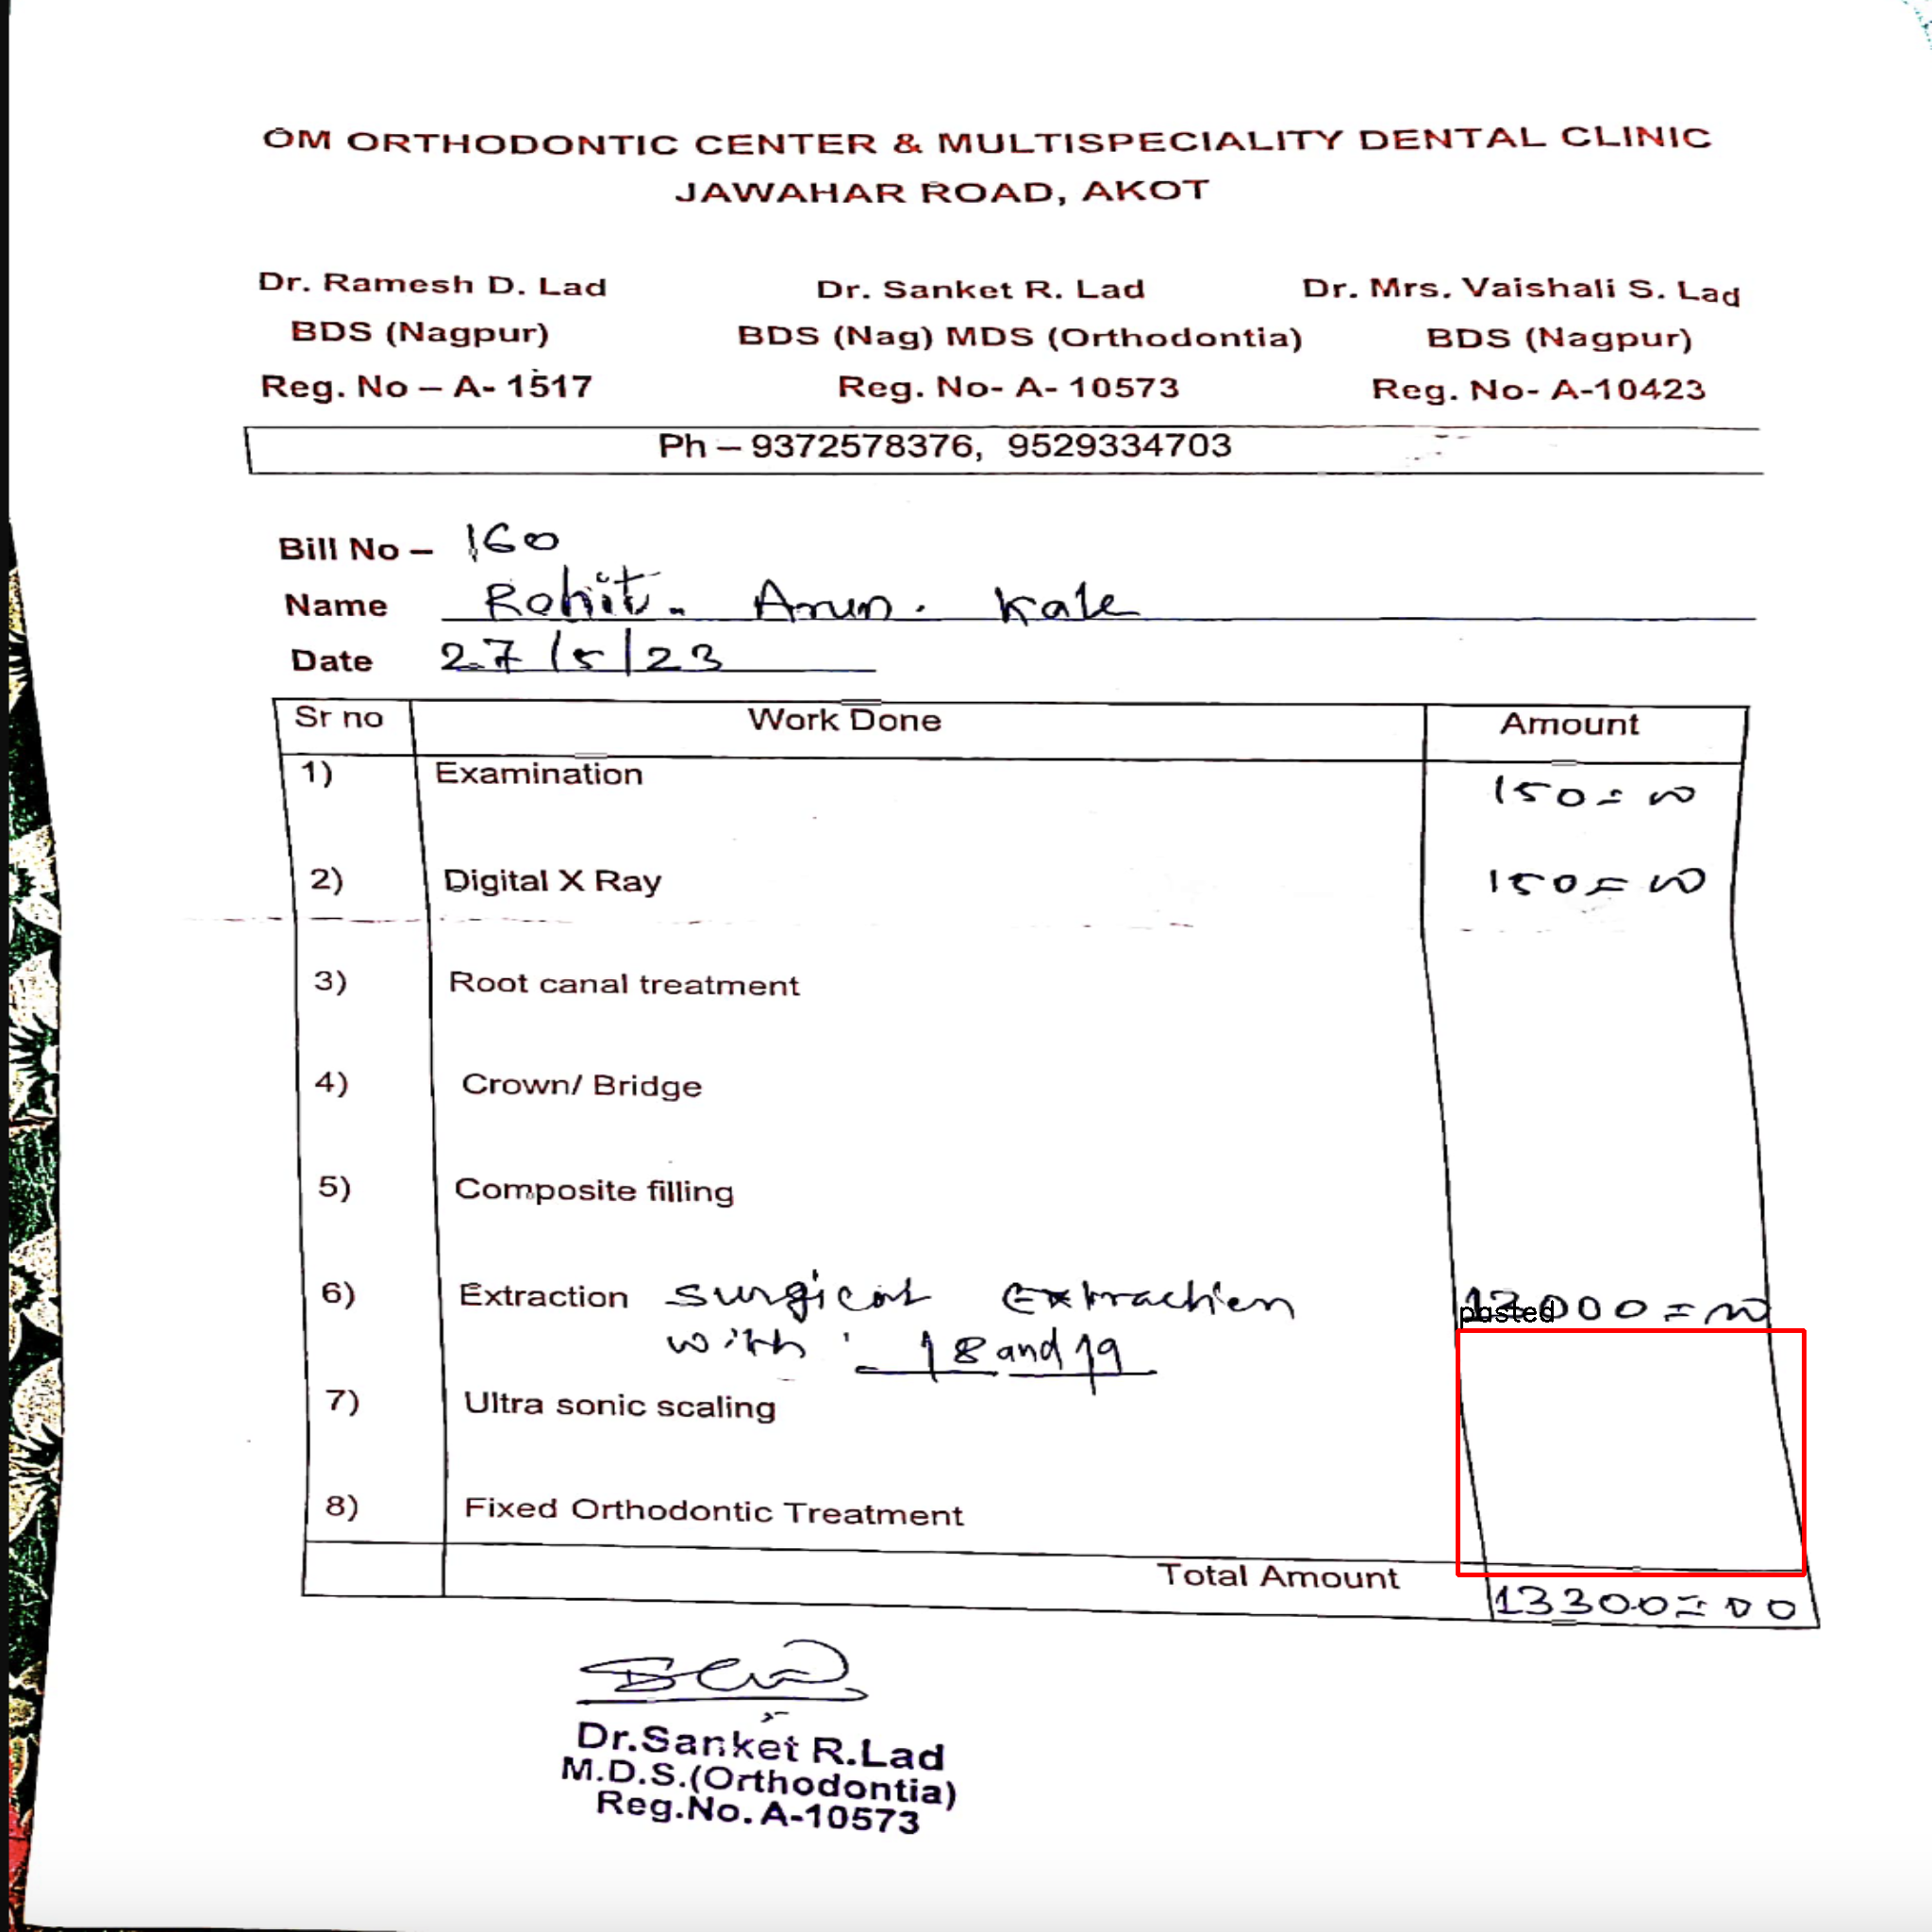 OM ORTHODONTIC CENTER & MULTISPECIALITY DENTAL CLINIC
JAWAHAR ROAD, AKOT
Dr. Ramesh D. Lad Dr. Sanket R. Lad Dr. Mrs. Vaishali S. Lad
BDS (Nagpur) BDS (Nag) MDS (Orthodontia) BDS (Nagpur)
Reg. No – A- 1517 Reg. No- A- 10573 Reg. No- A-10423
Ph – 9372578376, 9529334703
Bill No – 160
Name Rohit. Arun. Kale
Date 27/5/23
Sr no Work Done Amount
1) Examination 150=00
2) Digital X Ray 150=00
3) Root canal treatment
4) Crown/ Bridge
5) Composite filling
6) Extraction surgical Extraction 13000=00
pasted
with 18 and 19
7) Ultra sonic scaling
8) Fixed Orthodontic Treatment
Total Amount 13300=00
Dr.Sanket R.Lad
M.D.S.(Orthodontia)
Reg.No.A-10573